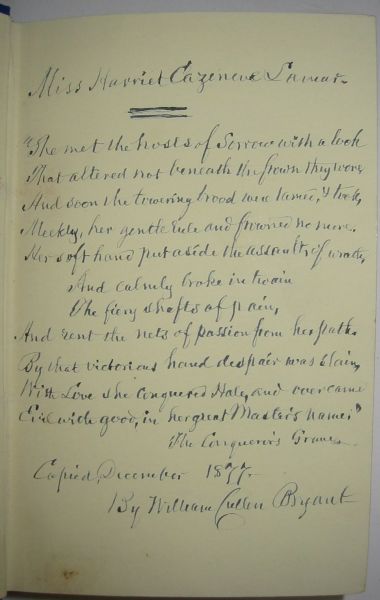 Miss Harriet Cazenove Lamar.
"She met the hosts of Sorrow with a look
That altered not beneath the frown they wore
And soon the lowering brood were tamed, & took,
Meekly, her gentle rule and frowned no more.
Her soft hand put aside the assaults of wrath,
And calmly broke in twain
The fiery shafts of pain,
And rent the nets of passion from her path.
By that victorious hand despair was slain,
With Love she conquered Hate, and overcame
Evil with good, in her great Master's name."
The Conqueror's Grave.
Copied December 1877.
By William Cullen Bryant